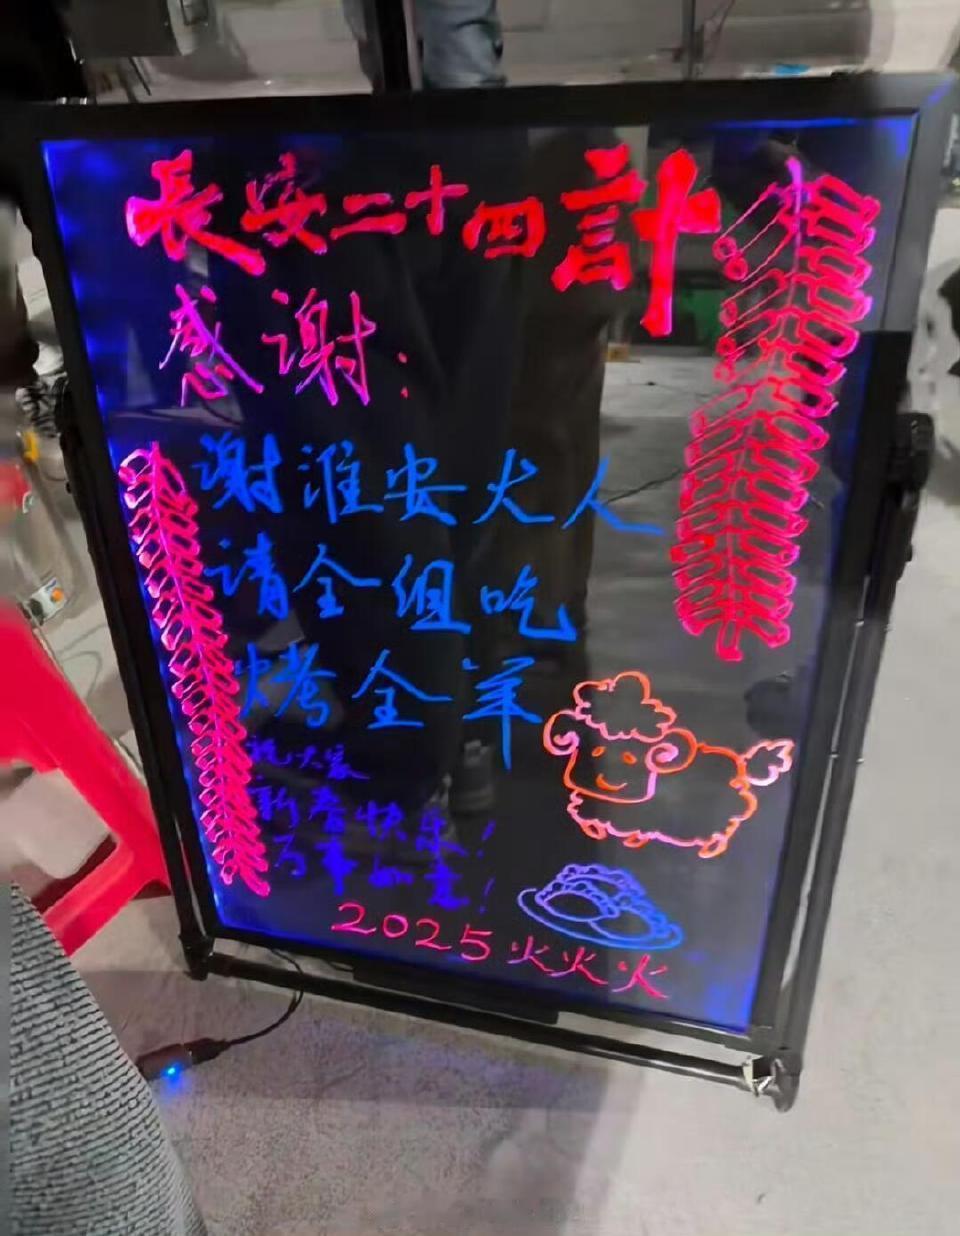 長安二十四計
感谢：
谢淮安大人
请全组吃
烤全羊
祝大家
新春快乐！
万事如意！
2025火火火